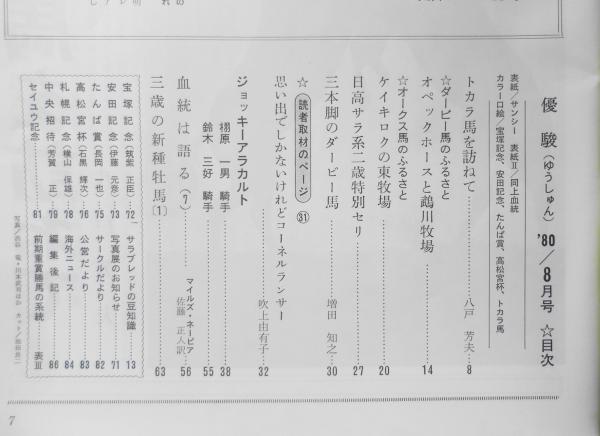 優駿(ゆうしゅん) '80/8月号 ☆目次
表紙/サンシー 表紙Ⅱ/同上血統
カラー口絵/宝塚記念、安田記念、たんぱ賞、高松宮杯、トカラ馬
トカラ馬を訪ねて……八戸 芳夫…8
☆ダービー馬のふるさと
オペックホースと鵡川牧場……14
☆オークス馬のふるさと
ケイキロクの東牧場……20
日高サラ系二歳特別セリ……27
三本脚のダービー馬……増田 知之…30
☆読者取材のページ㉛
思い出でしかないけれどコーネルランサー……吹上由有子…32
ジョッキーアラカルト
栩原 一男 騎手……38
鈴木 三好 騎手……55
血統は語る(7)……マイルズ・ネーピア 佐藤 正人訳…56
三歳の新種牡馬〔1〕……63
宝塚記念(筑紫 正臣)…72
安田記念(伊藤 元彦)…73
たんぱ賞(長岡 一也)…75
高松宮杯(石黒 輝次)…76
札幌記念(横山 保雄)…78
中央招待(芳賀 正)…79
セイユウ記念……81
サラブレッドの豆知識……13
写真展のお知らせ……71
サークルだより……82
公営だより……83
海外ニュース……84
編集後記……86
前期重賞勝馬の系統……表Ⅲ
7